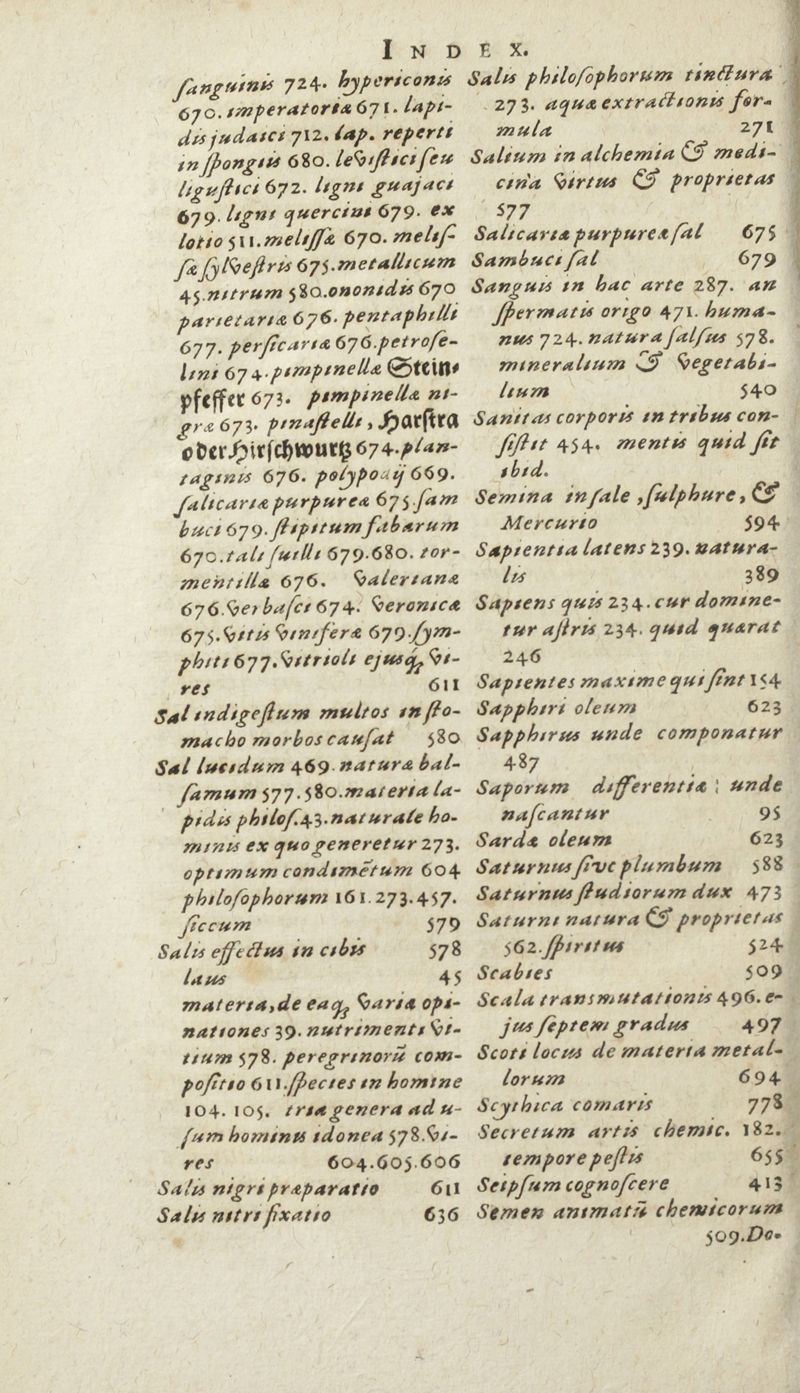 INDEX.
ſanguinis 724. hypericonis
670. imperatoriæ 671. lapi-
dis judaici 712. lap. reperti
in ſpongiis 680. leviſtici ſeu
liguſtici 672. ligni guajaci
679. ligni quercini 679. ex
lotio 511. meliſſæ 670. meliſ-
ſæ ſylveſtris 675. metallicum
45. nitrum 580. ononidis 670
parietariæ 676. pentaphilli
677. perſicariæ 676. petroſe-
lini 674. pimpinellæ Stein⸗
pfeffer 673. pimpinellæ ni-
græ 673. pinaſtelli, Harſtra
oder Hirſchwurtz 674. plan-
taginis 676. polypodij 669.
ſalicariæ purpureæ 675. ſam
buci 679. ſtipitum fabarum
670. tali ſuilli 679. 680. tor-
mentillæ 676. valerianæ
676. verbaſci 674. veronicæ
675. vitis viniferæ 679. ſym-
phiti 677. vitrioli ejusq; vi-
res 611
Sal indigeſtum multos in ſto-
macho morbos cauſat 580
Sal lucidum 469. naturæ bal-
ſamum 577. 580. materia la-
pidis philoſ. 43. naturale ho-
minis ex quo generetur 273.
optimum condimētum 604
philoſophorum 161. 273. 457.
ſiccum 579
Salis effectus in cibis 578
laus 45
materia, de eaq; varia opi-
nationes 39. nutrimenti vi-
tium 578. peregrinorū com-
poſitio 611. ſpecies in homine
104. 105. tria genera ad u-
ſum hominis idonea 578. vi-
res 604. 605. 606
Salis nigri præparatio 611
Salis nitri fixatio 636
Salis philoſophorum tinctura
273. aquæ extractionis for-
mula 271
Salium in alchemia & medi-
cina virtus & proprietas
577
Salicariæ purpureæ ſal 675
Sambuci ſal 679
Sanguis in hac arte 287. an
ſpermatis origo 471. huma-
nus 724. natura ſalſus 578.
mineralium & vegetabi-
lium 540
Sanitas corporis in tribus con-
ſiſtit 454. mentis quid ſit
ibid.
Semina in ſale, ſulphure, &
Mercurio 594
Sapientia latens 239. natura-
lis 389
Sapiens quis 234. cur domine-
tur aſtris 234. quid quærat
246
Sapientes maxime qui ſint 154
Sapphiri oleum 623
Sapphirus unde componatur
487
Saporum differentiæ; unde
naſcantur 95
Sardæ oleum 623
Saturnus ſive plumbum 588
Saturnus ſtudiorum dux 473
Saturni natura & proprietas
562. ſpiritus 524
Scabies 509
Scala transmutationis 496. e-
jus ſeptem gradus 497
Scoti locus de materia metal-
lorum 694
Scythica comaris 778
Secretum artis chemic. 182.
tempore peſtis 655
Seipſum cognoſcere 413
Semen animatū chemicorum
509. Do-